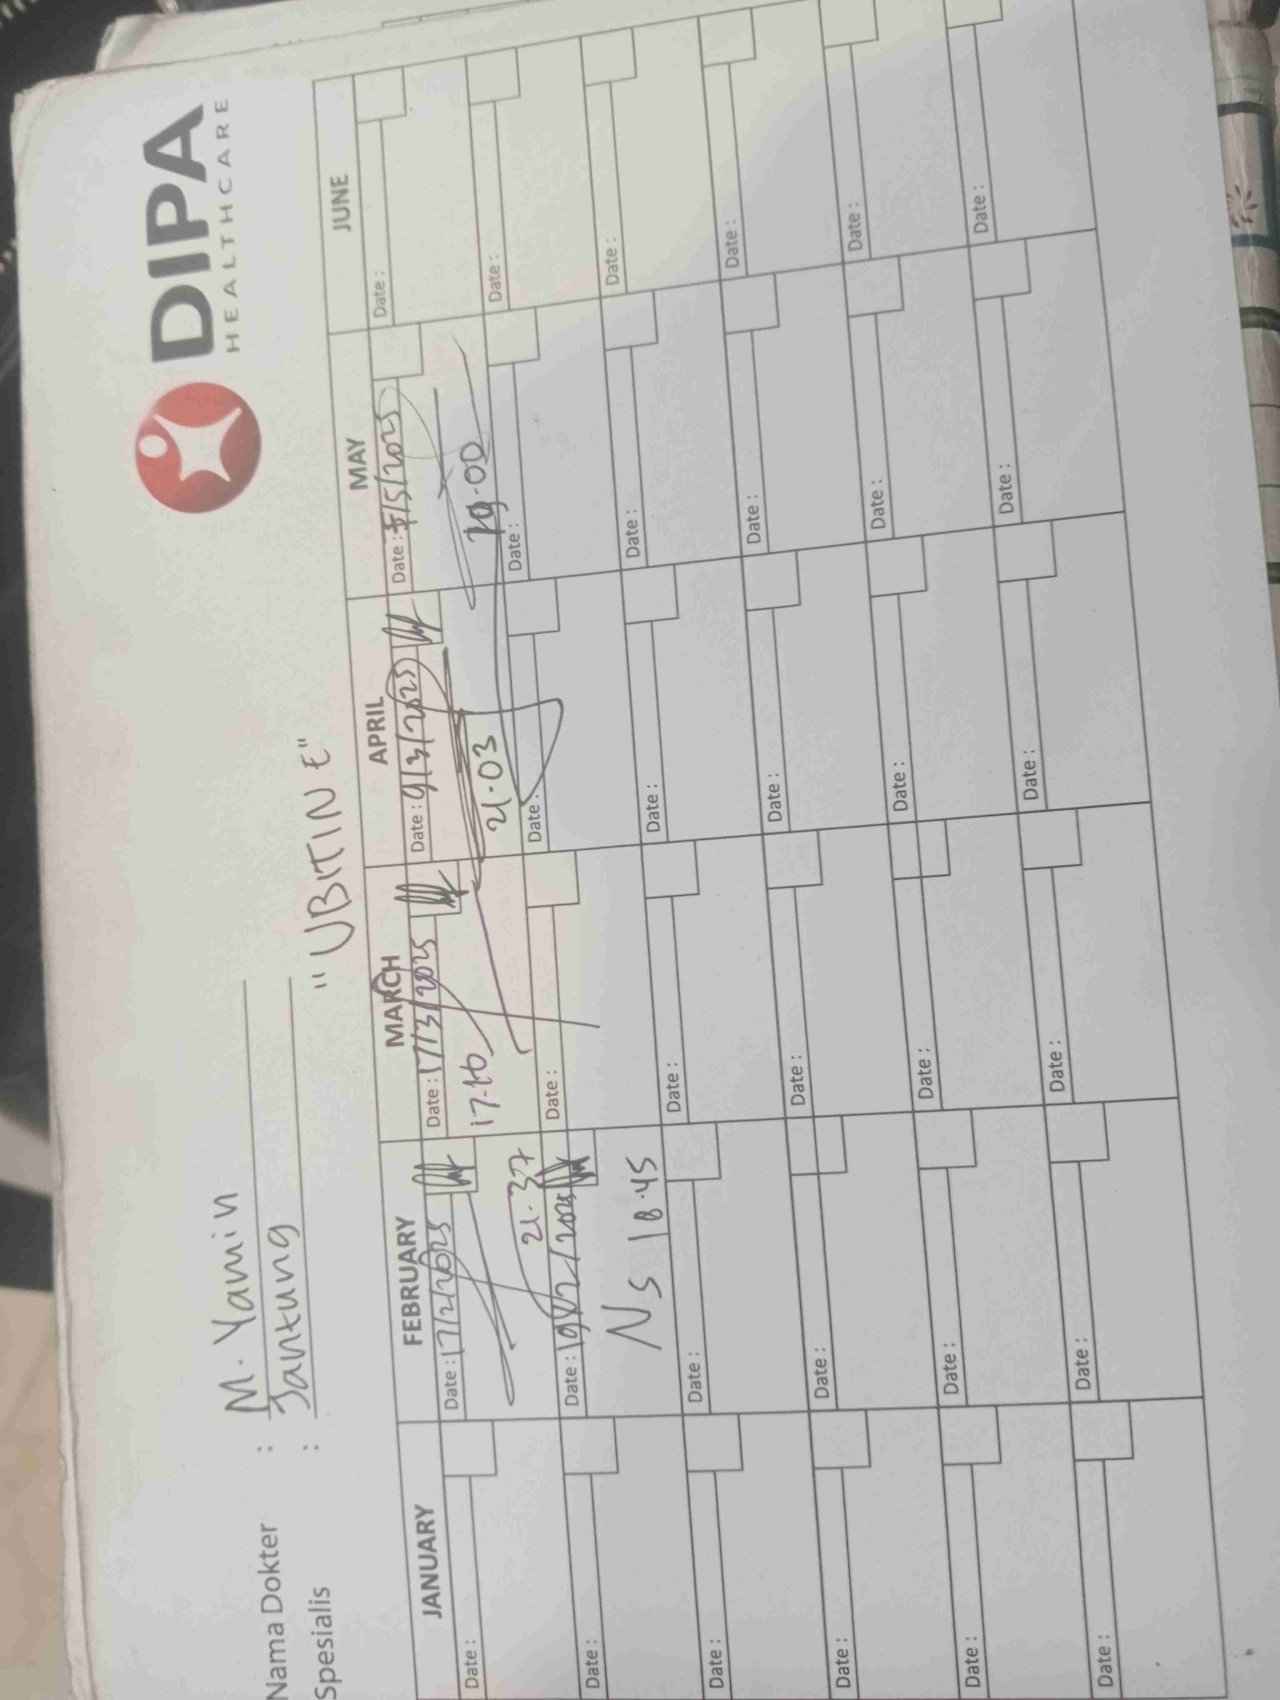 DIPA
HEALTHCARE
Nama Dokter : M. Yamin
Spesialis : Jantung
"UBITINE"
JANUARY FEBRUARY MARCH APRIL MAY JUNE
Date : Date : 17/2/2025 Date : 17/3/2025 Date : 9/3/2025 Date : /5/2025 Date :
21.37 17.16 21.03 19.00
Date : Date : 19/2/2025 Date : Date : Date : Date :
NS 18.45
Date : Date : Date : Date : Date : Date :
Date : Date : Date : Date : Date : Date :
Date : Date : Date : Date : Date : Date :
Date : Date : Date : Date : Date : Date :